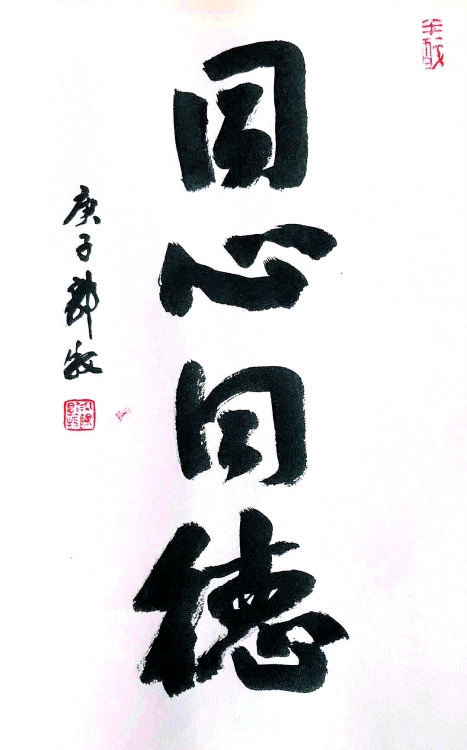 同心同德
庚子